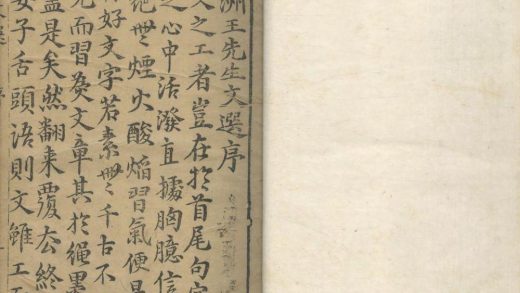 洲王先生文選序
文之工者豈在扵首尾句字
之心中活潑直據胸臆信
絕無煙火酸焰習氣便是
好文字若素無千古不
而習為文章其扵繩墨
盡是矣然翻来覆去終
婆子舌頭語則文雖工
序